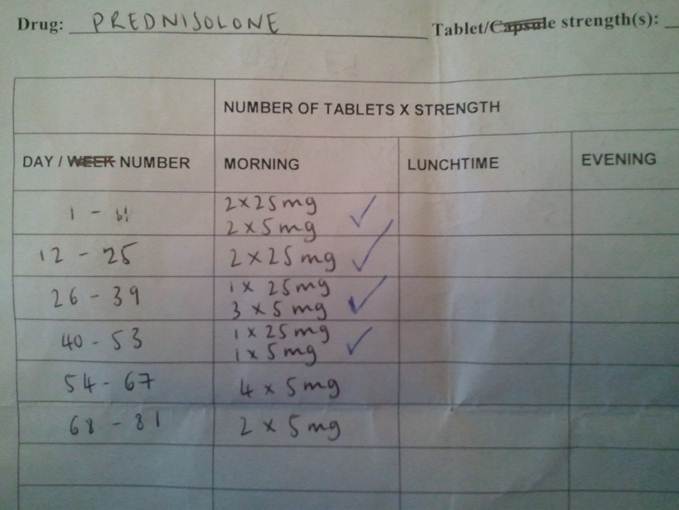 Drug: PREDNISOLONE Tablet/Capsule strength(s):
NUMBER OF TABLETS X STRENGTH
DAY / WEEK NUMBER MORNING LUNCHTIME EVENING
1 - 11 2 x 25mg
2 x 5mg
12 - 25 2 x 25mg
26 - 39 1 x 25mg
3 x 5mg
40 - 53 1 x 25mg
1 x 5mg
54 - 67 4 x 5mg
68 - 81 2 x 5mg